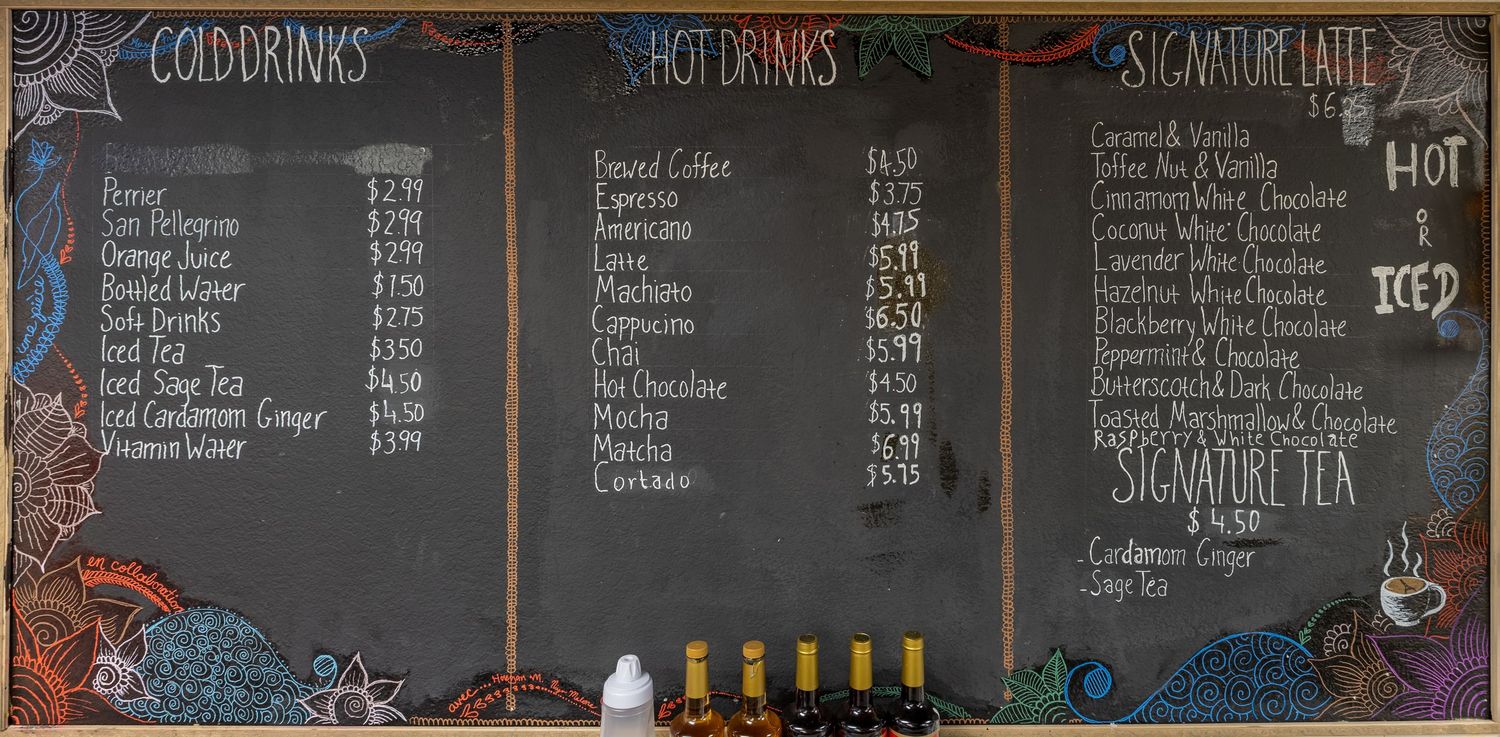 COLD DRINKS
Perrier $2.99
San Pellegrino $2.99
Orange Juice $2.99
Bottled Water $1.50
Soft Drinks $2.75
Iced Tea $3.50
Iced Sage Tea $4.50
Iced Cardamom Ginger $4.50
Vitamin Water $3.99
une pièce
en collaboration
avec...
HOT DRINKS
Brewed Coffee $4.50
Espresso $3.75
Americano $4.75
Latte $5.99
Machiato $5.99
Cappucino $6.50
Chai $5.99
Hot Chocolate $4.50
Mocha $5.99
Matcha $6.99
Cortado $5.75
SIGNATURE LATTE
Caramel & Vanilla
Toffee Nut & Vanilla
Cinnamom White Chocolate
Coconut White Chocolate
Lavender White Chocolate
Hazelnut White Chocolate
Blackberry White Chocolate
Peppermint & Chocolate
Butterscotch & Dark Chocolate
Toasted Marshmallow & Chocolate
Raspberry & White Chocolate
HOT
OR
ICED
SIGNATURE TEA
$4.50
- Cardamom Ginger
- Sage Tea